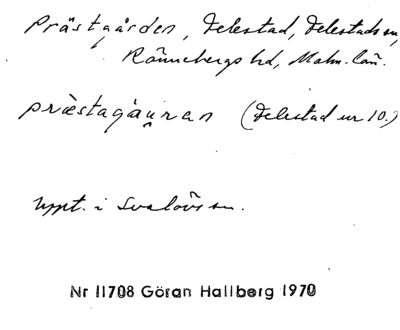 Prästgården, Felestad, Felestads sn,
Rönnebergs hd, Malm. län.
præstagåu̯ran (Felestad nr 10.)
Uppt. i Svalövs sn.
Nr 11708 Göran Hallberg 1970